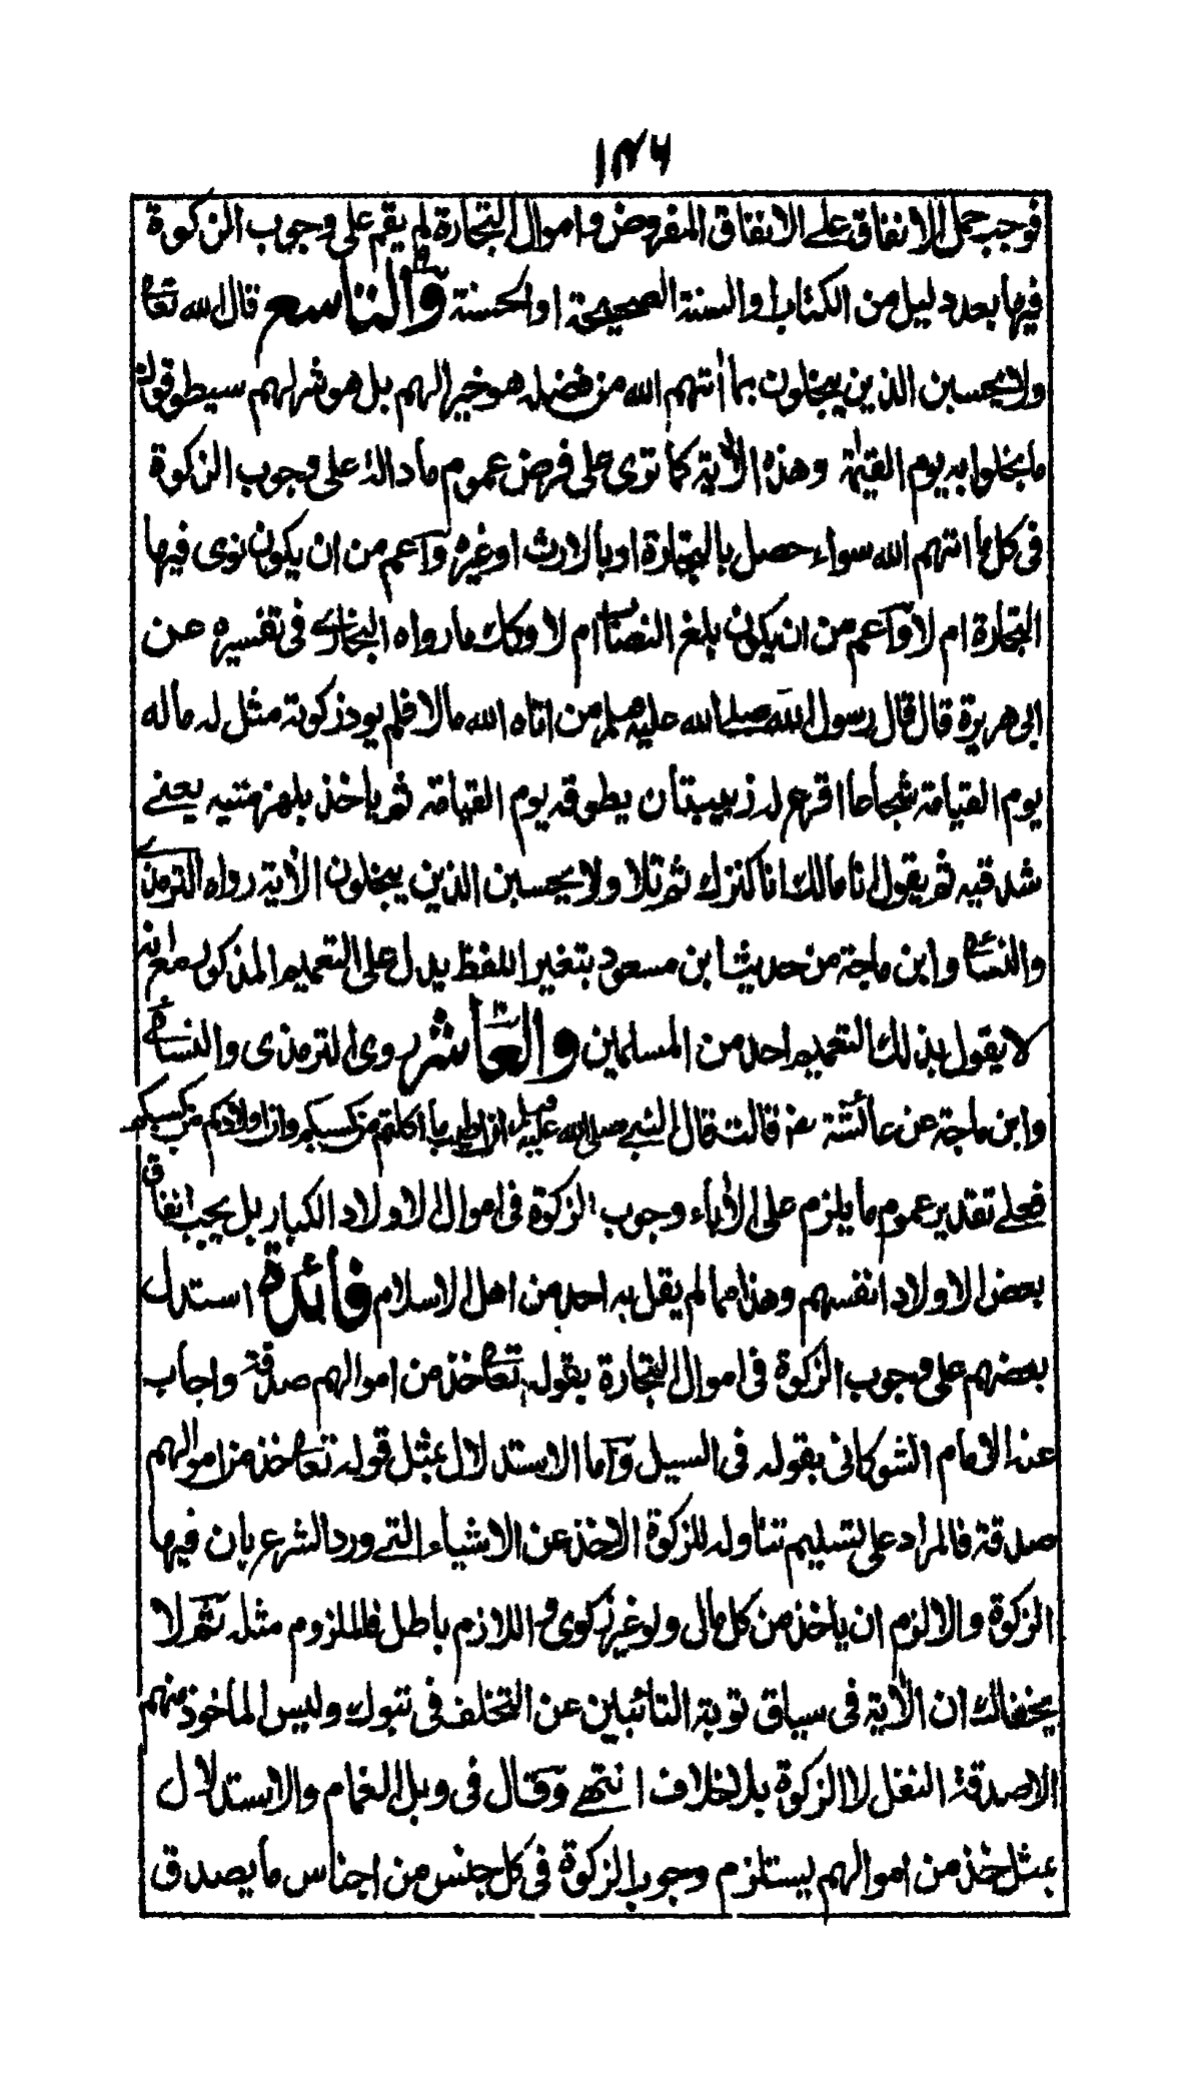 ١٤٦
فوجب حمل الانفاق على الانفاق المفروض واموال التجارة لم يقم على وجوب الزكوة
فيها بعد دليل من الكتاب او السنة الصحيحة او الحسنة والتاسع قال الله تعا
ولا يحسبن الذين يبخلون بما أتهم الله من فضله هو خيرا لهم بل هو شر لهم سيطوقون
ما بخلوا به يوم القيٰمة وهذه الأية كما ترى على فرض عموم ما دالة على وجوب الزكوة
فى كل ما اتهم الله سواء حصل بالتجارة او بالارث او غيره وآعم من ان يكون نوى فيها
التجارة ام لا وآعم من ان يكون بلغ النصاب ام لا وكك ما رواه البخارى فى تفسيره عن
ابى هريرة قال قال رسول الله صلى الله عليه وسلم من اتاه الله مالا فلم يود زكوته مثل له ماله
يوم القيامة شجاعا اقرع له زبيبتان يطوقه يوم القيامة ثم ياخذ بلهزمتيه يعنى
شدقيه ثم يقول انا مالك انا كنزك ثم تلا ولا يحسبن الذين يبخلون الأية رواه الترمذى
والنسائى وابن ماجة من حديث ابن مسعود بتغير اللفظ يدل على التعميم المذكور مع انه
لا يقول بذلك التعميم احد من المسلمين والعاشر روى الترمذى والنسائى
وابن ماجة عن عائشة رضـ قالت قال النبى صلى الله عليه وسلم ان اطيب ما اكلتم من كسبكم وان اولادكم من كسبكم
فعلى تقدير عموم ما يلزم على الأباء وجوب الزكوة فى اموال الاولاد الكبار بل يجب انفاق
بعض الاولاد انفسهم وهذا مما لم يقل به احد من اهل الاسلام فائدة استدل
بعضهم على وجوب الزكوة فى اموال التجارة بقوله تعا خذ من اموالهم صدقة واجاب
عنه الامام الشوكانى بقوله فى السيل وآما الاستدلال بمثل قوله تعا خذ من اموالهم
صدقة فالمراد على تسليم تناوله للزكوة الاخذ عن الاشياء التى ورد الشرع بان فيها
الزكوة والا لزم ان ياخذ من كل مال ولو غير زكوى واللازم باطل فالملزوم مثله ثم لا
يخفاك ان الأية فى سياق توبة التائبين عن التخلف فى تبوك وليس الماخوذ منهم
الا صدقة النفل لا الزكوة بلا خلاف انتهى وقال فى وبل الغمام والاستدلال
بمثل خذ من اموالهم يستلزم وجوب الزكوة فى كل جنس من اجناس ما يصدق